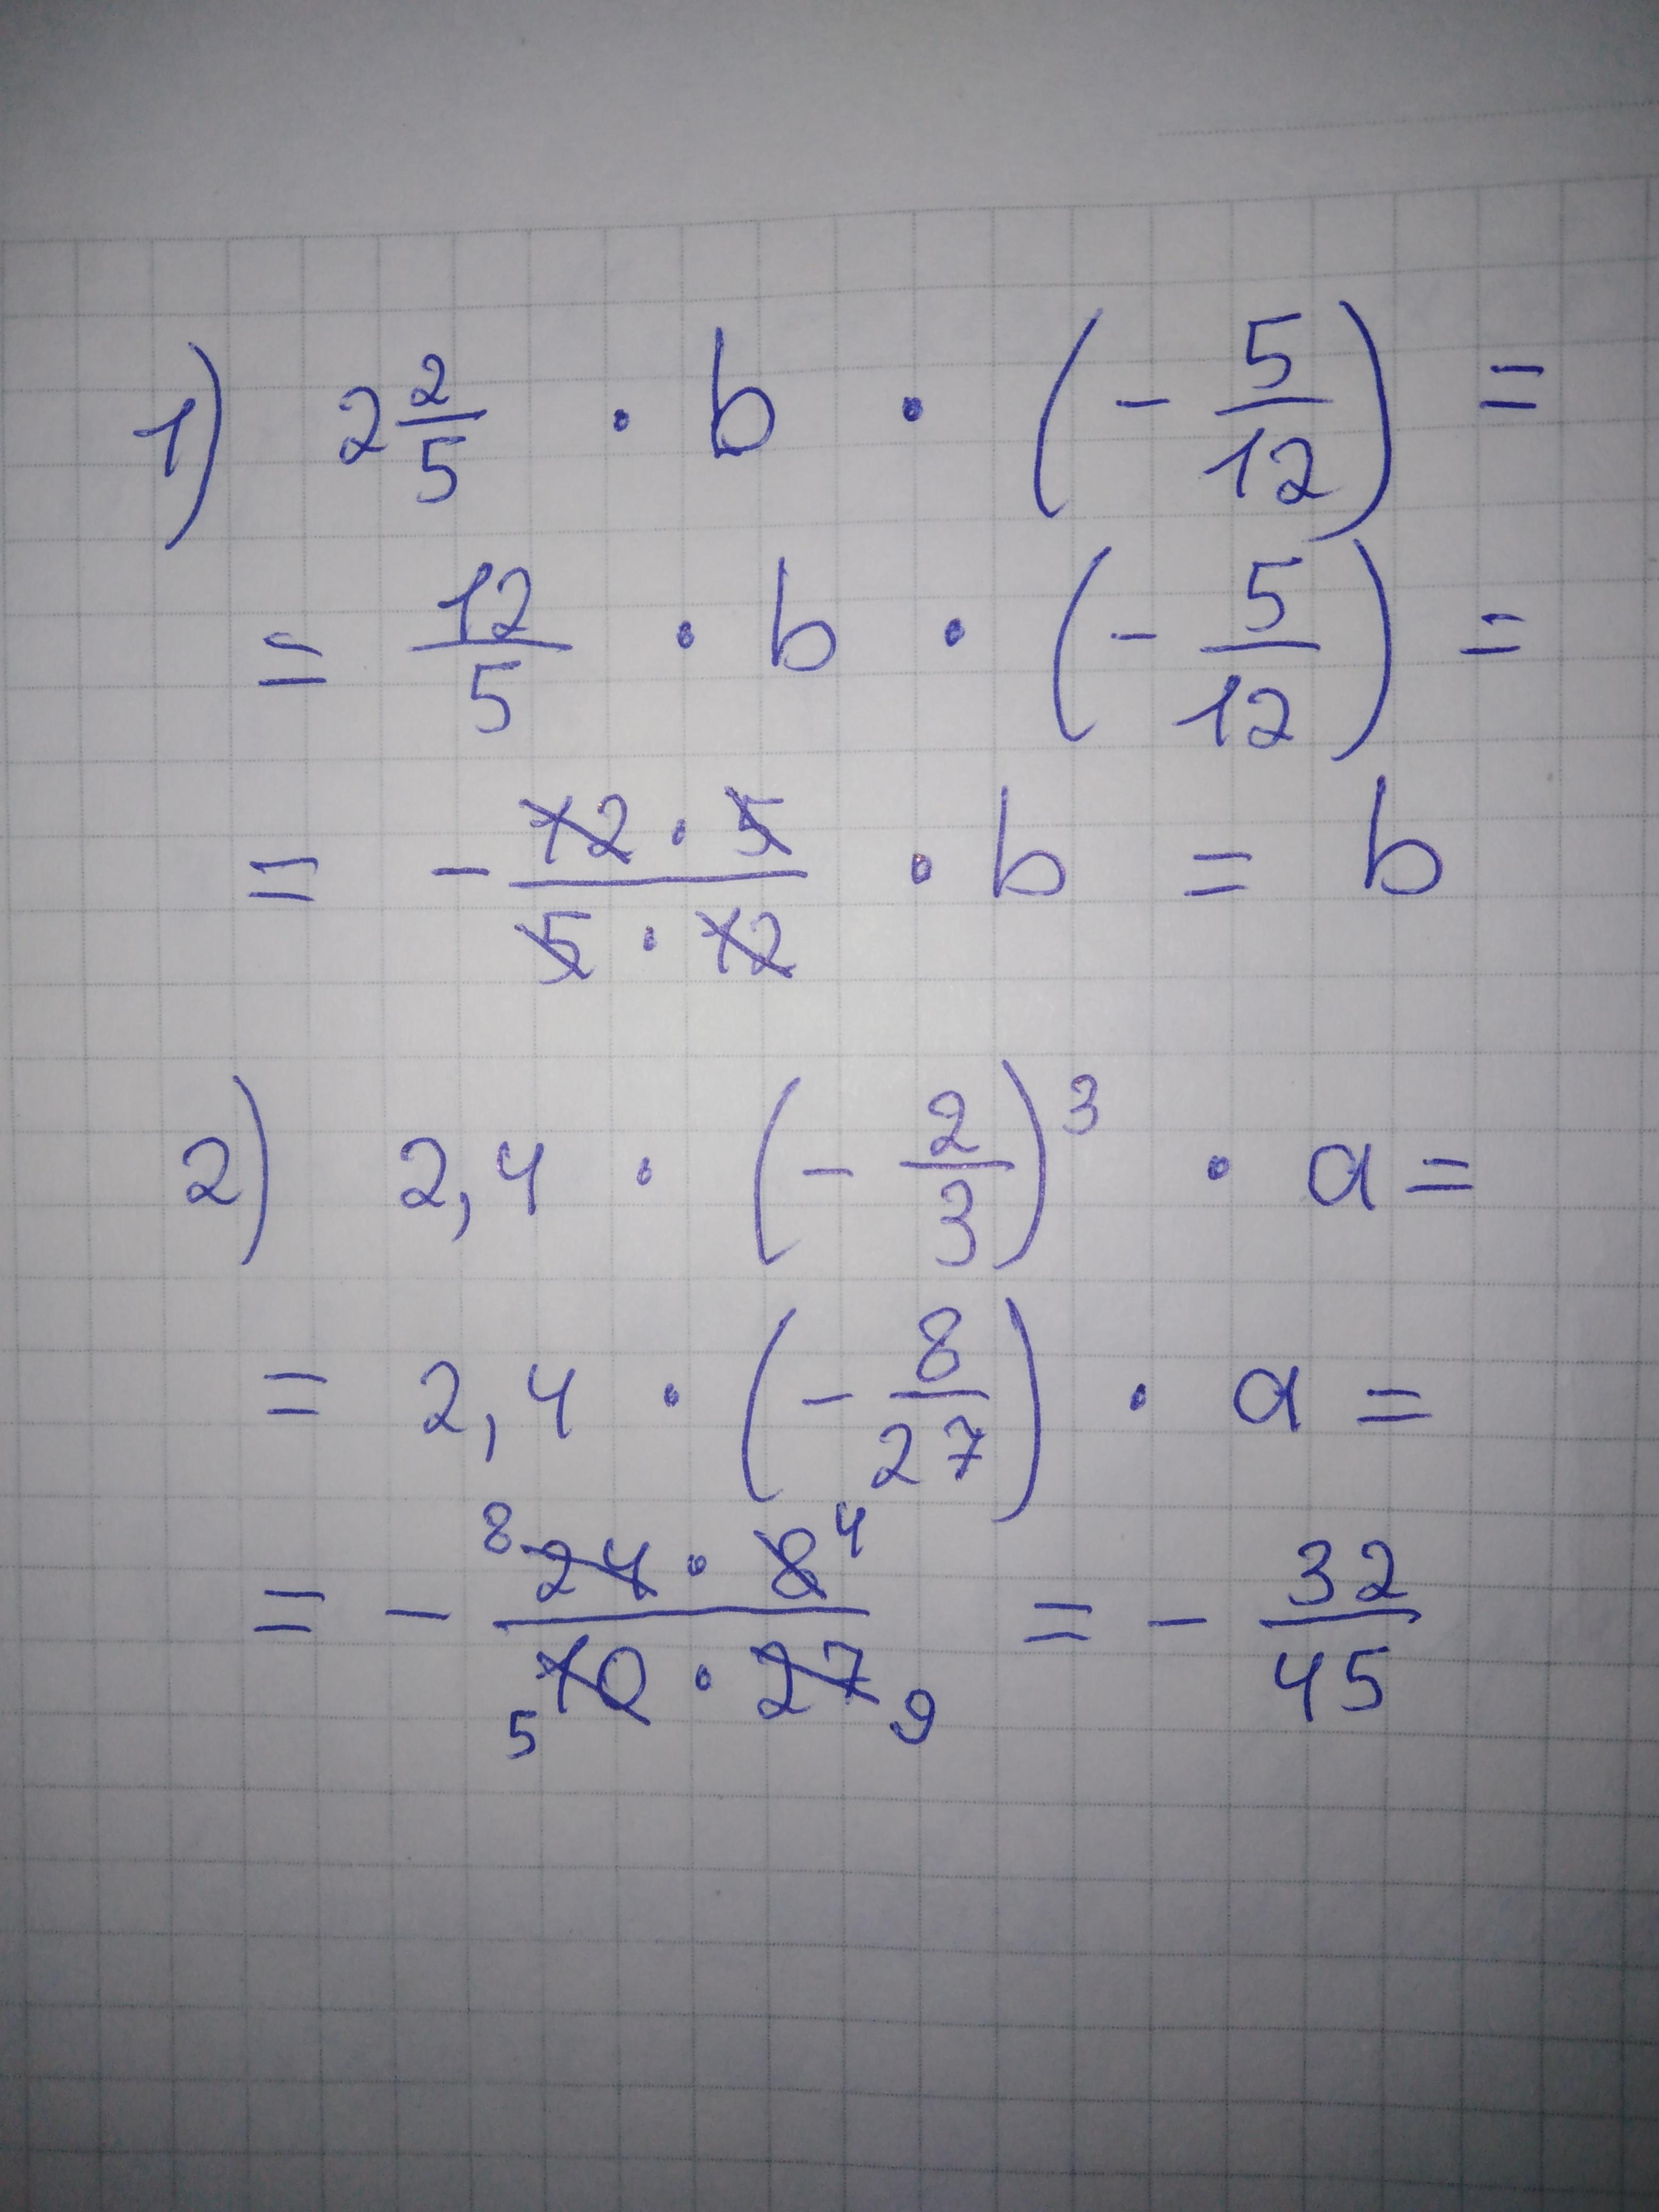 1) 2 2/5 · b · (- 5/12) =
= 12/5 · b · (- 5/12) =
= - 12 · 5 / 5 · 12 · b = b
2) 2,4 · (- 2/3)³ · a =
= 2,4 · (- 8/27) · a =
= - 8 24 · 8 4 / 5 10 · 27 9 = - 32/45